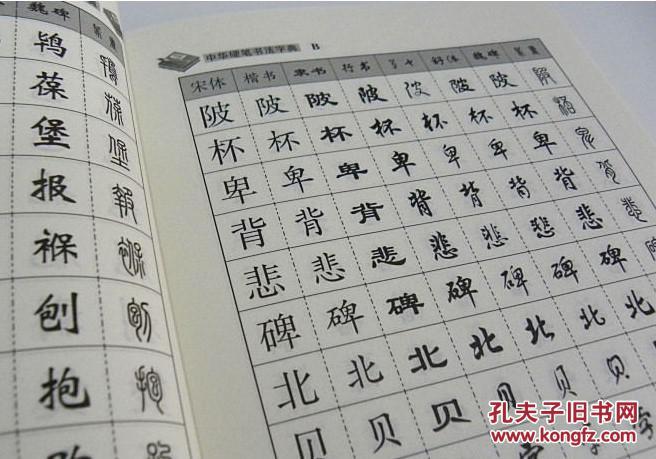 魏碑 篆书
鸨 鸨
葆 葆
堡 堡
报 報
褓 褓
刨 刨
抱 抱
中华硬笔书法字典 B
宋体 楷书 隶书 行书 魏碑 篆書
陂 陂 陂 陂 陂 陂 陂 陂
杯 杯 杯 杯 杯 杯 杯
卑 卑 卑 卑 卑 卑 卑 卑
背 背 背 背 背 背 背
悲 悲 悲 悲 悲 悲 悲 悲
碑 碑 碑 碑 碑 碑 碑 碑
北 北 北 北 北 北 北
贝 贝 贝 贝 贝 贝
字 字
孔夫子旧书网
www.kongfz.com